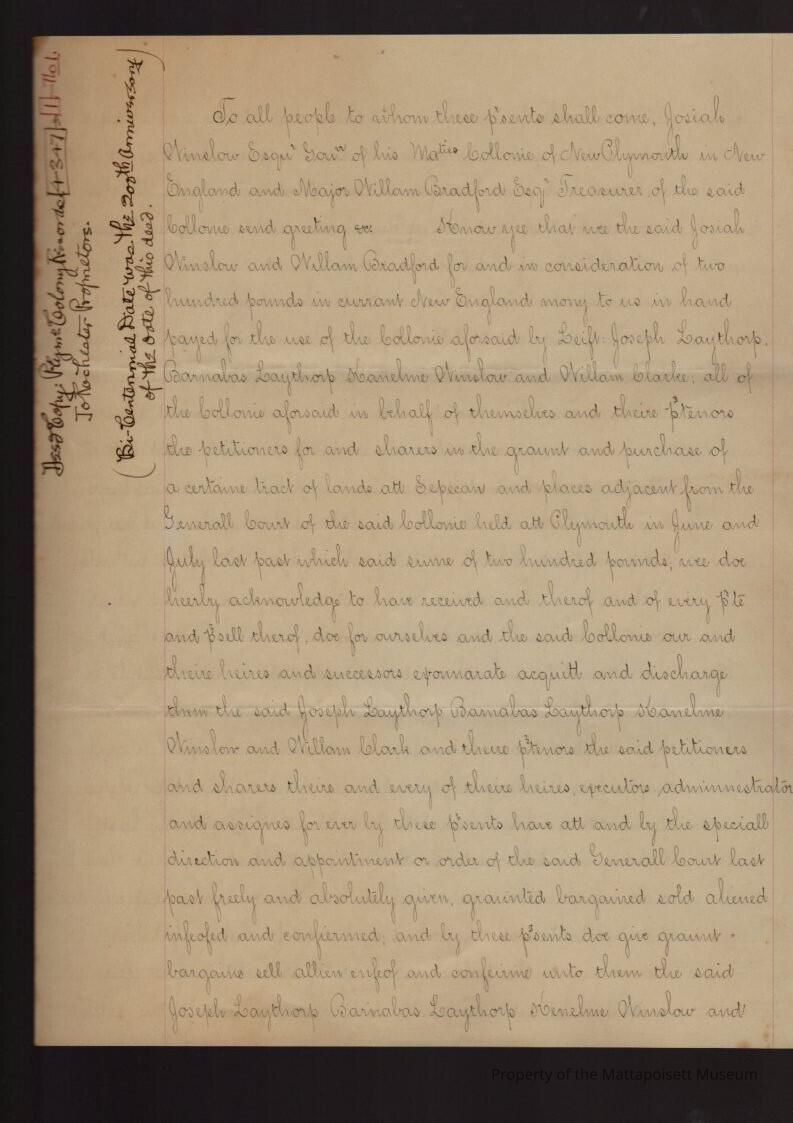 To all people to whom these p'sents shall come, Josiah
Winslow Esqur Govrn of his Maties Collonie of New Plymouth in New
England and Major Willam Bradford Esqr Treasurer of the said
Collonie send greeting &c: Know yee that wee the said Josiah
Winslow and Willam Bradford for and in consideration of two
hundred pounds in currant New England mony to us in hand
payed for the use of the Collonie aforsaid by Leift: Joseph Laythorp.
Barnabas Laythorp Kanelme Winslow and Willam Clarke; all of
the Collonie aforsaid in behalf of themselves and theire p'tenors
the petitioners for and sharers in the graunt and purchase of
a certaine tract of lands att Sepecan and places adjacent from the
Generall Court of the said Collonie held att Plymouth in June and
July last past which said sume of two hundred pounds, wee doe
heerby acknowledge to have received and therof and of every p'te
and p'sell therof, doe for ourselves and the said Collonie our and
theire heires and successors exonnarate acquitt and discharge
them the said Joseph Laythorp Barnabas Laythorp Kanelme
Winslow and Willam Clark and theire p'tenors the said petitioners
and sharers theire and every of theire heires, executors, adminnestrators
and assignes for ever by these p'sents have att and by the speciall
direction and appointment or order of the said Generall Court last
past freely and absolutely given, graunted bargained sold aliened
infeofed and confiermed; and by these p'sents doe give graunt -
bargaine sell allien enfeof and confeirme unto them the said
Joseph Laythorp Barnabas Laythorp Kenelme Winslow and
Deed Copy: Plym: Colony Records
To Rochester Proprietors.
(Bi-Centennial Date was the 200th Anniversary
of the date of this deed.)
Property of the Mattapoisett Museum